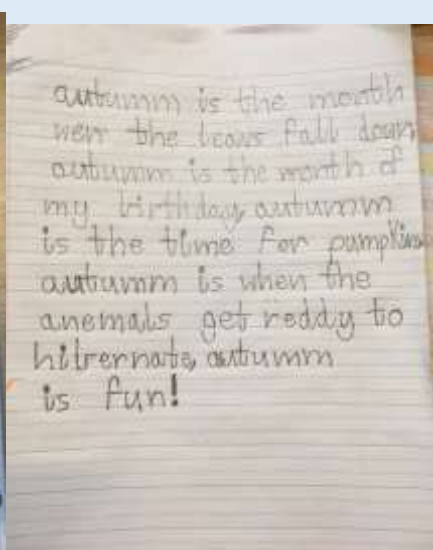 autumm is the month
wen the leavs fall down
autumm is the month of
my birthday, autumm
is the time for pumpkins
autumm is when the
anemals get reddy to
hibernate, autumm
is fun!